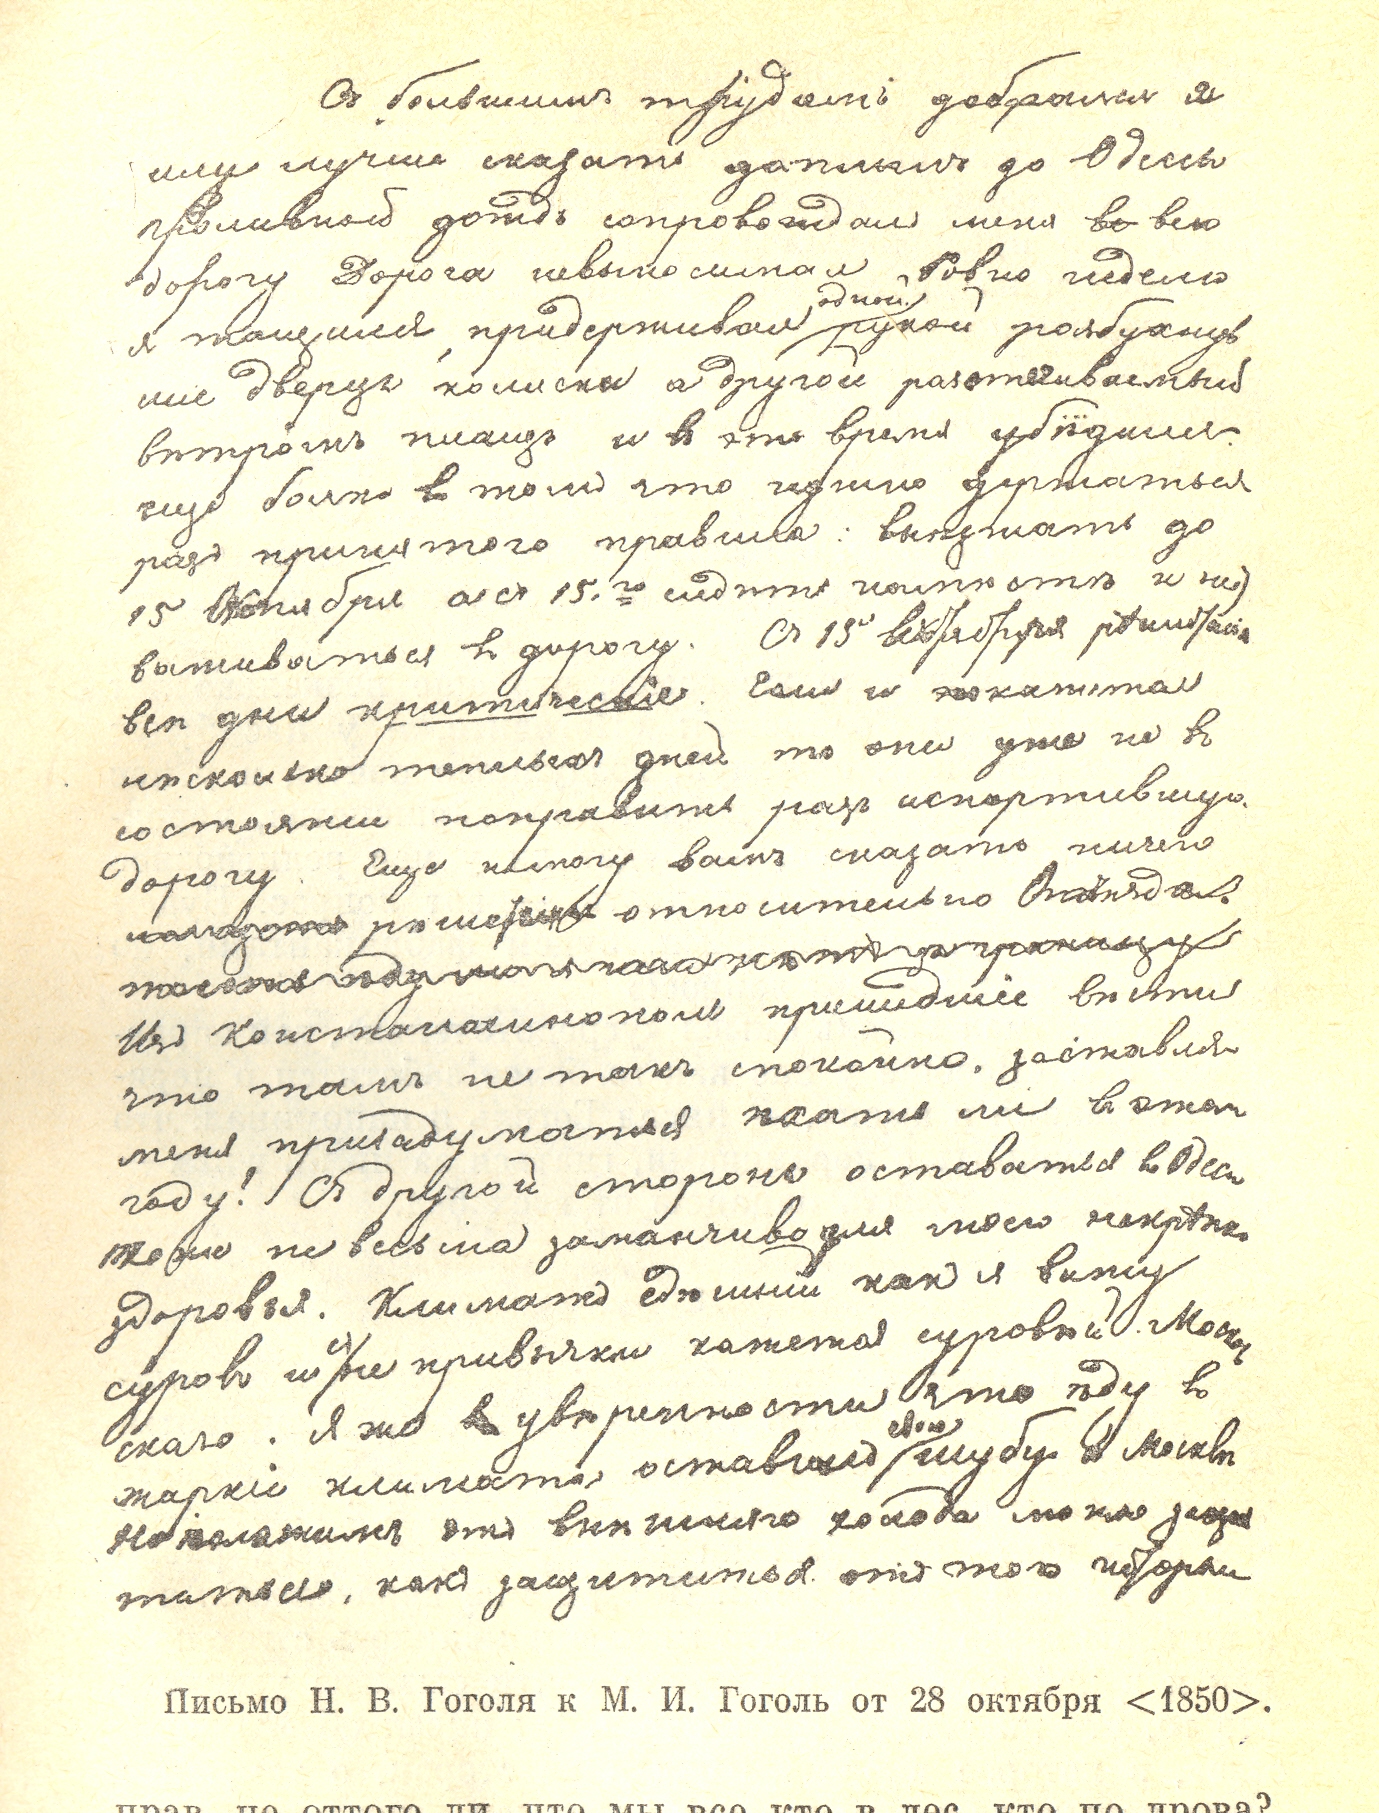 Съ большимъ трудомъ добрался я
или лучше сказать доплылъ до Одессы
проливной дождь сопровождал меня во всю
дорогу Дорога невыносимая Ровно неделю
я тащился, придерживая одной рукой разбухнув
шие дверцы коляски а другой разстегиваемый
вѣтромъ плащъ и в это время убѣдился
еще более в том что нужно держаться
разъ принятого правила: выезжать до
15 Октября а съ 15.го сидѣть на мѣстѣ и не
важиваться въ дорогу. Съ 15 октября
всѣ дни критическіе. Если и покажется
нѣсколько теплых дней то они уже не въ
состоянии поправить разъ испортившуюся
дорогу. Еще не могу вамъ сказать ничего
относительно Отъѣзда.
Изъ Константинополя пришедшіе вѣсти
что тамъ не такъ спокойно, заставляют
меня призадуматься ѣхать ли въ этом
году! Съ другой стороны оставаться в Одессе
тоже не весьма заманчиво для моего некрѣпкого
здоровья. Климатъ здѣшний какъ я вижу
суровъ и с не привычки кажется суровѣй Мос
скаго. Я же въ увѣренности что ѣду въ
жаркій климатъ, оставилъ свою шубу в Москвѣ
Но положимъ отъ внешняго холода можно защи
титься, какъ защититься отъ того который
Письмо Н. В. Гоголя к М. И. Гоголь от 28 октября <1850>.